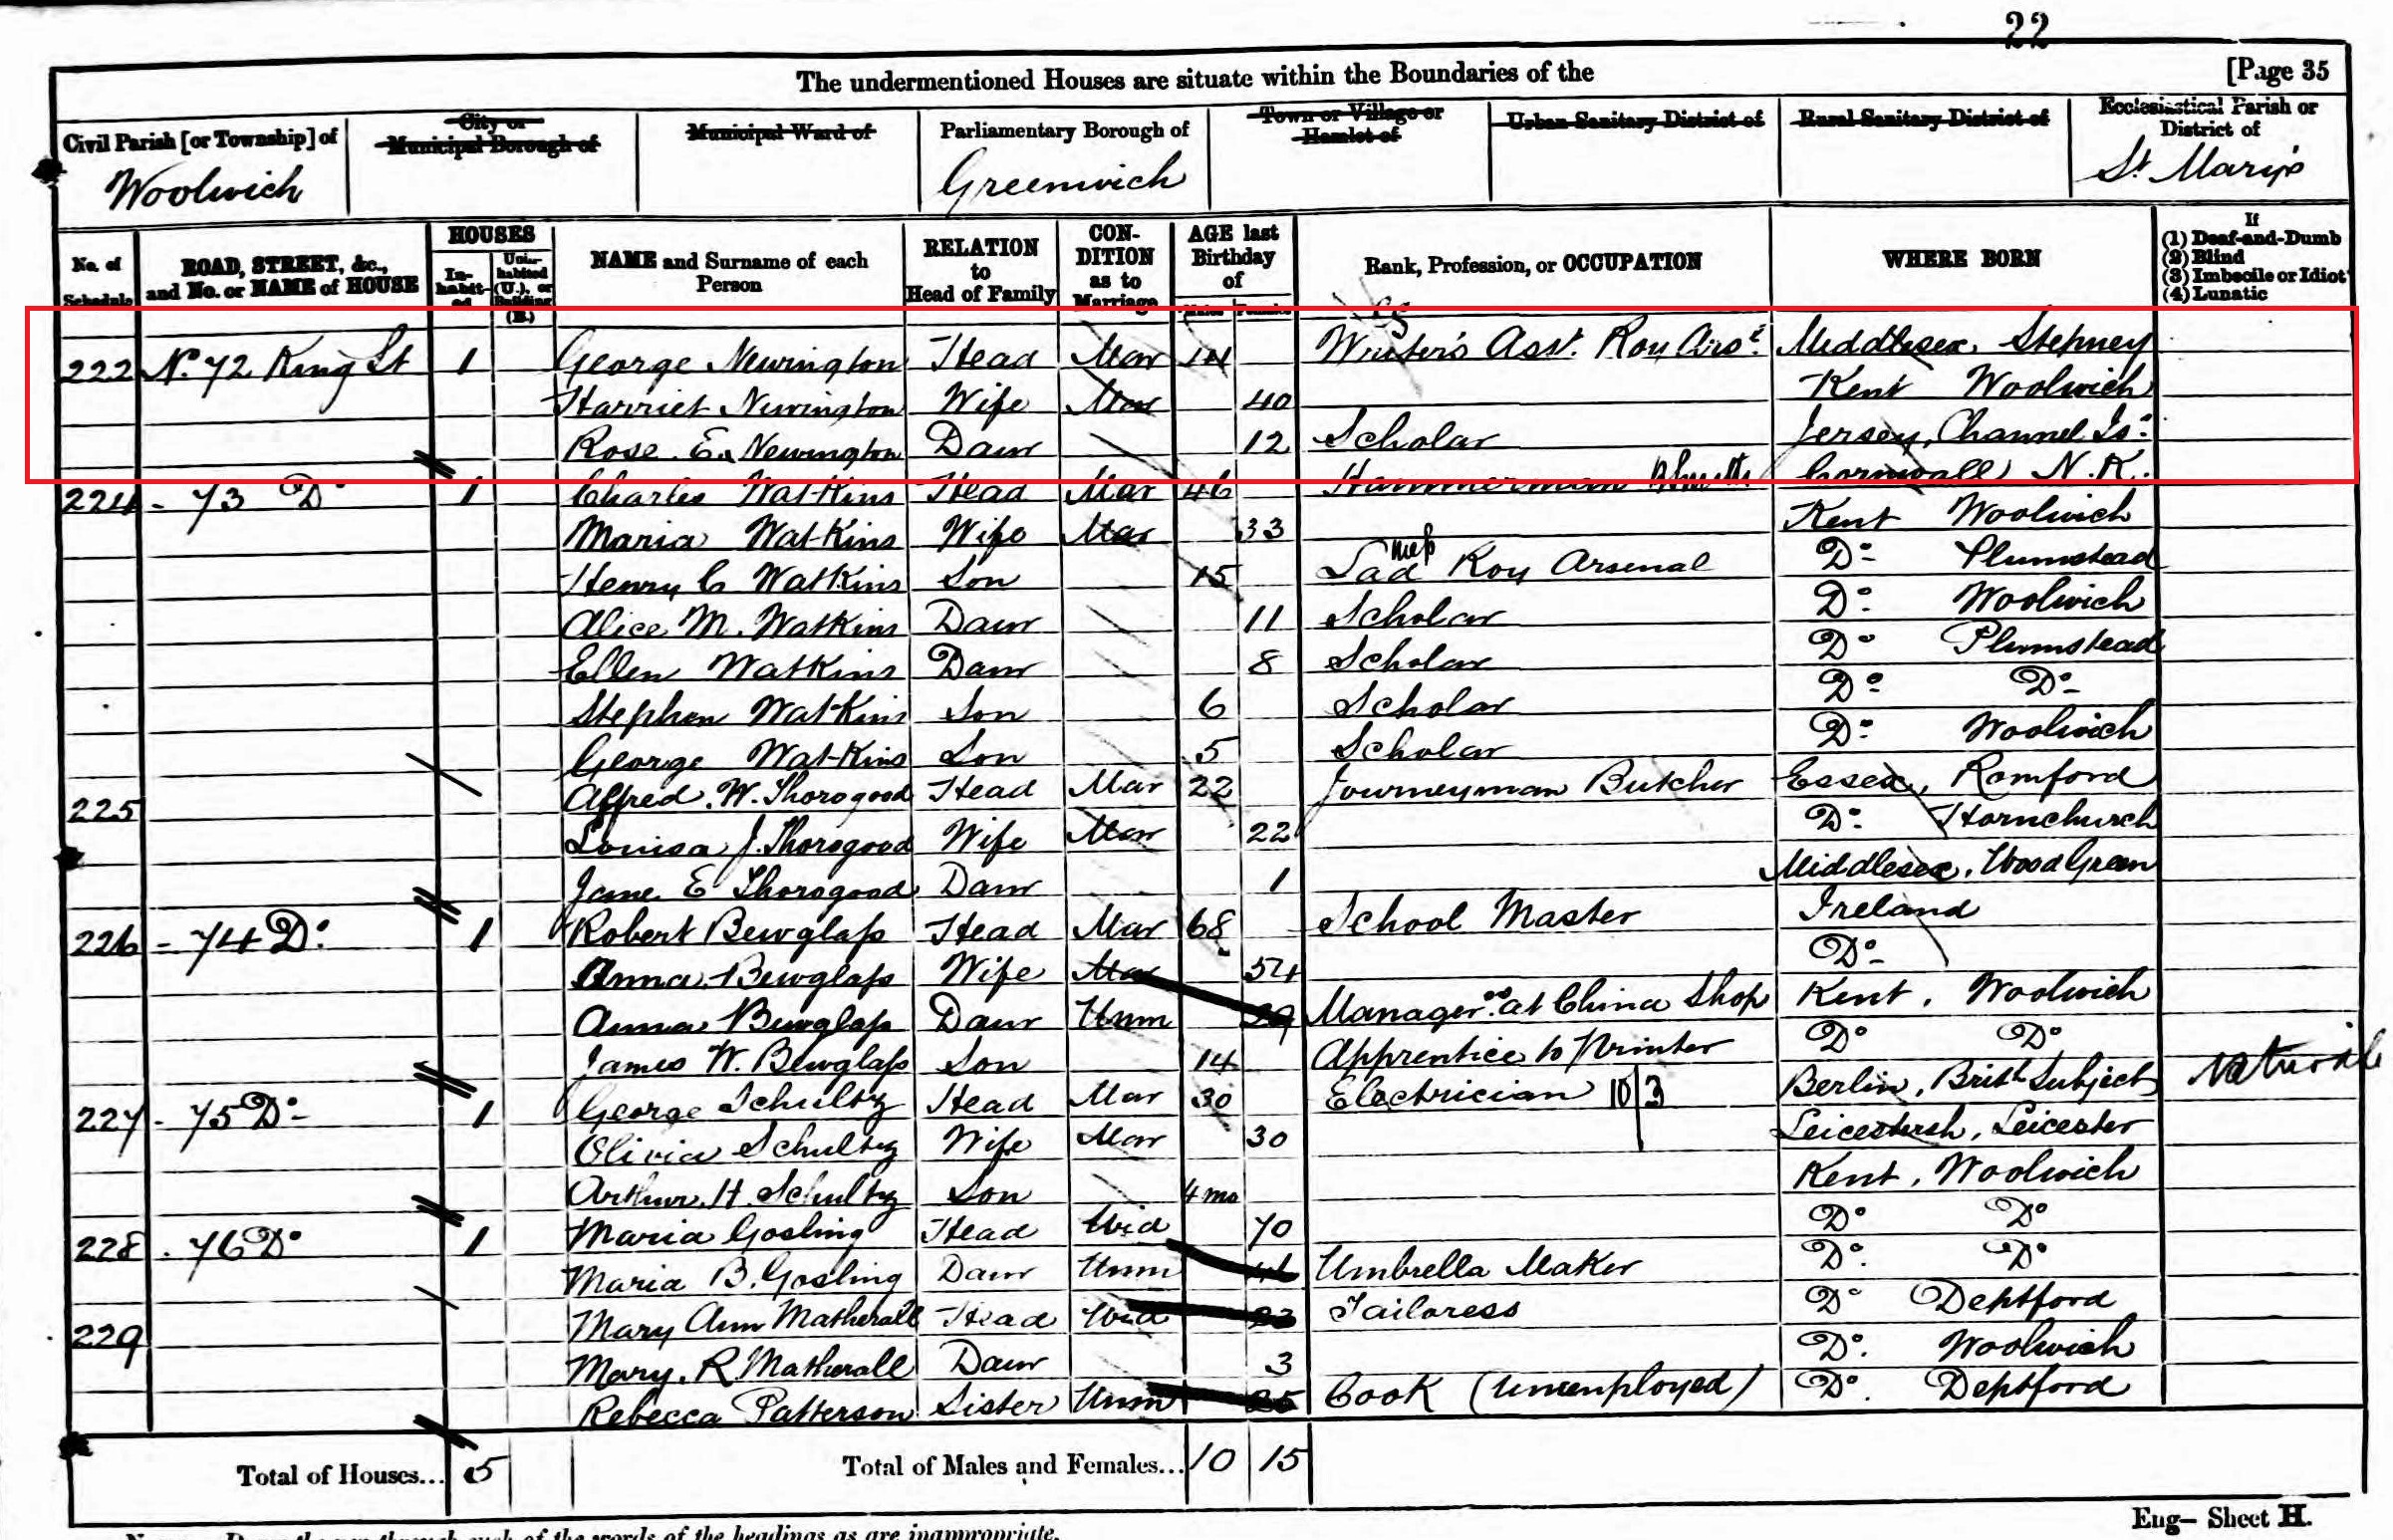 22
The undermentioned Houses are situate within the Boundaries of the [Page 35
Civil Parish [or Township] of City or Municipal Borough of Municipal Ward of Parliamentary Borough of Town or Village or Hamlet of Urban Sanitary District of Rural Sanitary District of Ecclesiastical Parish or District of
Woolwich Greenwich St. Mary's
No. of Schedule ROAD, STREET, &c., and No. or NAME of HOUSE HOUSES In-habit-ed Unin-habited (U.), or Building (B.) NAME and Surname of each Person RELATION to Head of Family CON-DITION as to Marriage AGE last Birthday of Males Females Rank, Profession, or OCCUPATION WHERE BORN If (1) Deaf-and-Dumb (2) Blind (3) Imbecile or Idiot (4) Lunatic
222 No. 72 King St 1 George Newington Head Mar Writer's Asst. Roy Arsl. Middlesex, Stepney
Harriet Newington Wife Mar 40 Kent Woolwich
Rose E. Newington Daur 12 Scholar Jersey, Channel Is:
224 - 73 Do 1 Charles Watkins Head Mar 46 Hammerman Cornwall N.K.
Maria Watkins Wife Mar 33 Kent Woolwich
Henry C Watkins Son 15 Lad Roy Arsenal Do Plumstead
Alice M. Watkins Daur 11 Scholar Do Woolwich
Ellen Watkins Daur 8 Scholar Do Plumstead
Stephen Watkins Son 6 Scholar Do Do
George Watkins Son 5 Scholar Do Woolwich
225 Alfred W. Thorogood Head Mar 22 Journeyman Butcher Essex, Romford
Louisa J. Thorogood Wife Mar 22 Do Hornchurch
Jane E Thorogood Daur 1 Middlesex, Wood Green
226 - 74 Do 1 Robert Bewglass Head Mar 68 School Master Ireland
Anna Bewglass Wife Mar 54 Do
Anna Bewglass Daur Unm 29 Manager at China Shop Kent, Woolwich
James W. Bewglass Son 14 Apprentice to Printer Do Do
227 - 75 Do 1 George Schultz Head Mar 30 Electrician 10/3 Berlin, Brith Subject
Olivia Schultz Wife Mar 30 Leicestersh, Leicester
Arthur H. Schultz Son 4 mo Kent, Woolwich
228 . 76 Do 1 Maria Gosling Head Wid 70 Do Do
Maria B. Gosling Daur Unm Umbrella Maker Do Do
229 Mary Ann Matherall Head Wid Tailoress Do Deptford
Mary R Matherall Daur 3 Do Woolwich
Rebecca Patterson Sister Unm 25 Cook (unemployed) Do Deptford
Total of Houses... 5 Total of Males and Females... 10 15
Eng— Sheet H.